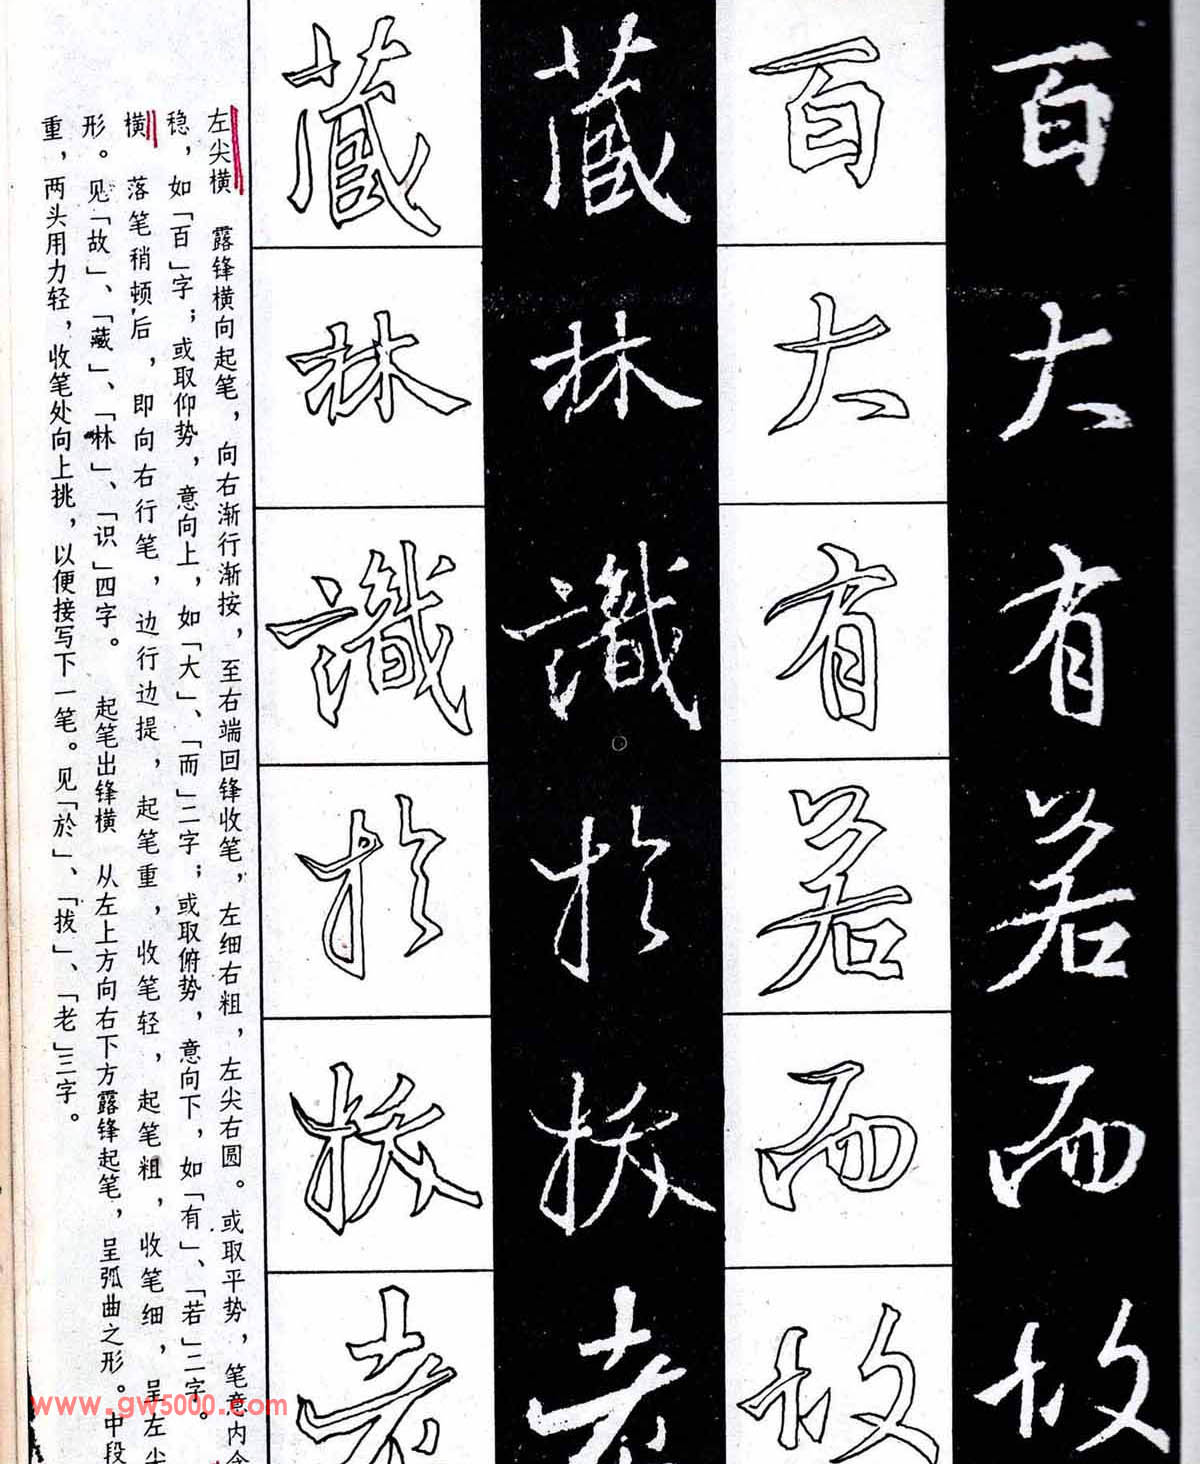 百大有若而故
百大有若而故
藏林識於拔老
藏林識於拔老
左尖横　露锋横向起笔，向右渐行渐按，至右端回锋收笔，左细右粗，左尖右圆。或取平势，笔意内含
稳，如「百」字；或取仰势，意向上，如「大」、「而」二字；或取俯势，意向下，如「有」、「若」二字。
横　落笔稍顿后，即向右行笔，边行边提，起笔重，收笔轻，起笔粗，收笔细，呈左尖
形。见「故」、「藏」、「林」、「识」四字。　起笔出锋横　从左上方向右下方露锋起笔，呈弧曲之形。中段
重，两头用力轻，收笔处向上挑，以便接写下一笔。见「於」、「拔」、「老」三字。
www.gw5000.com